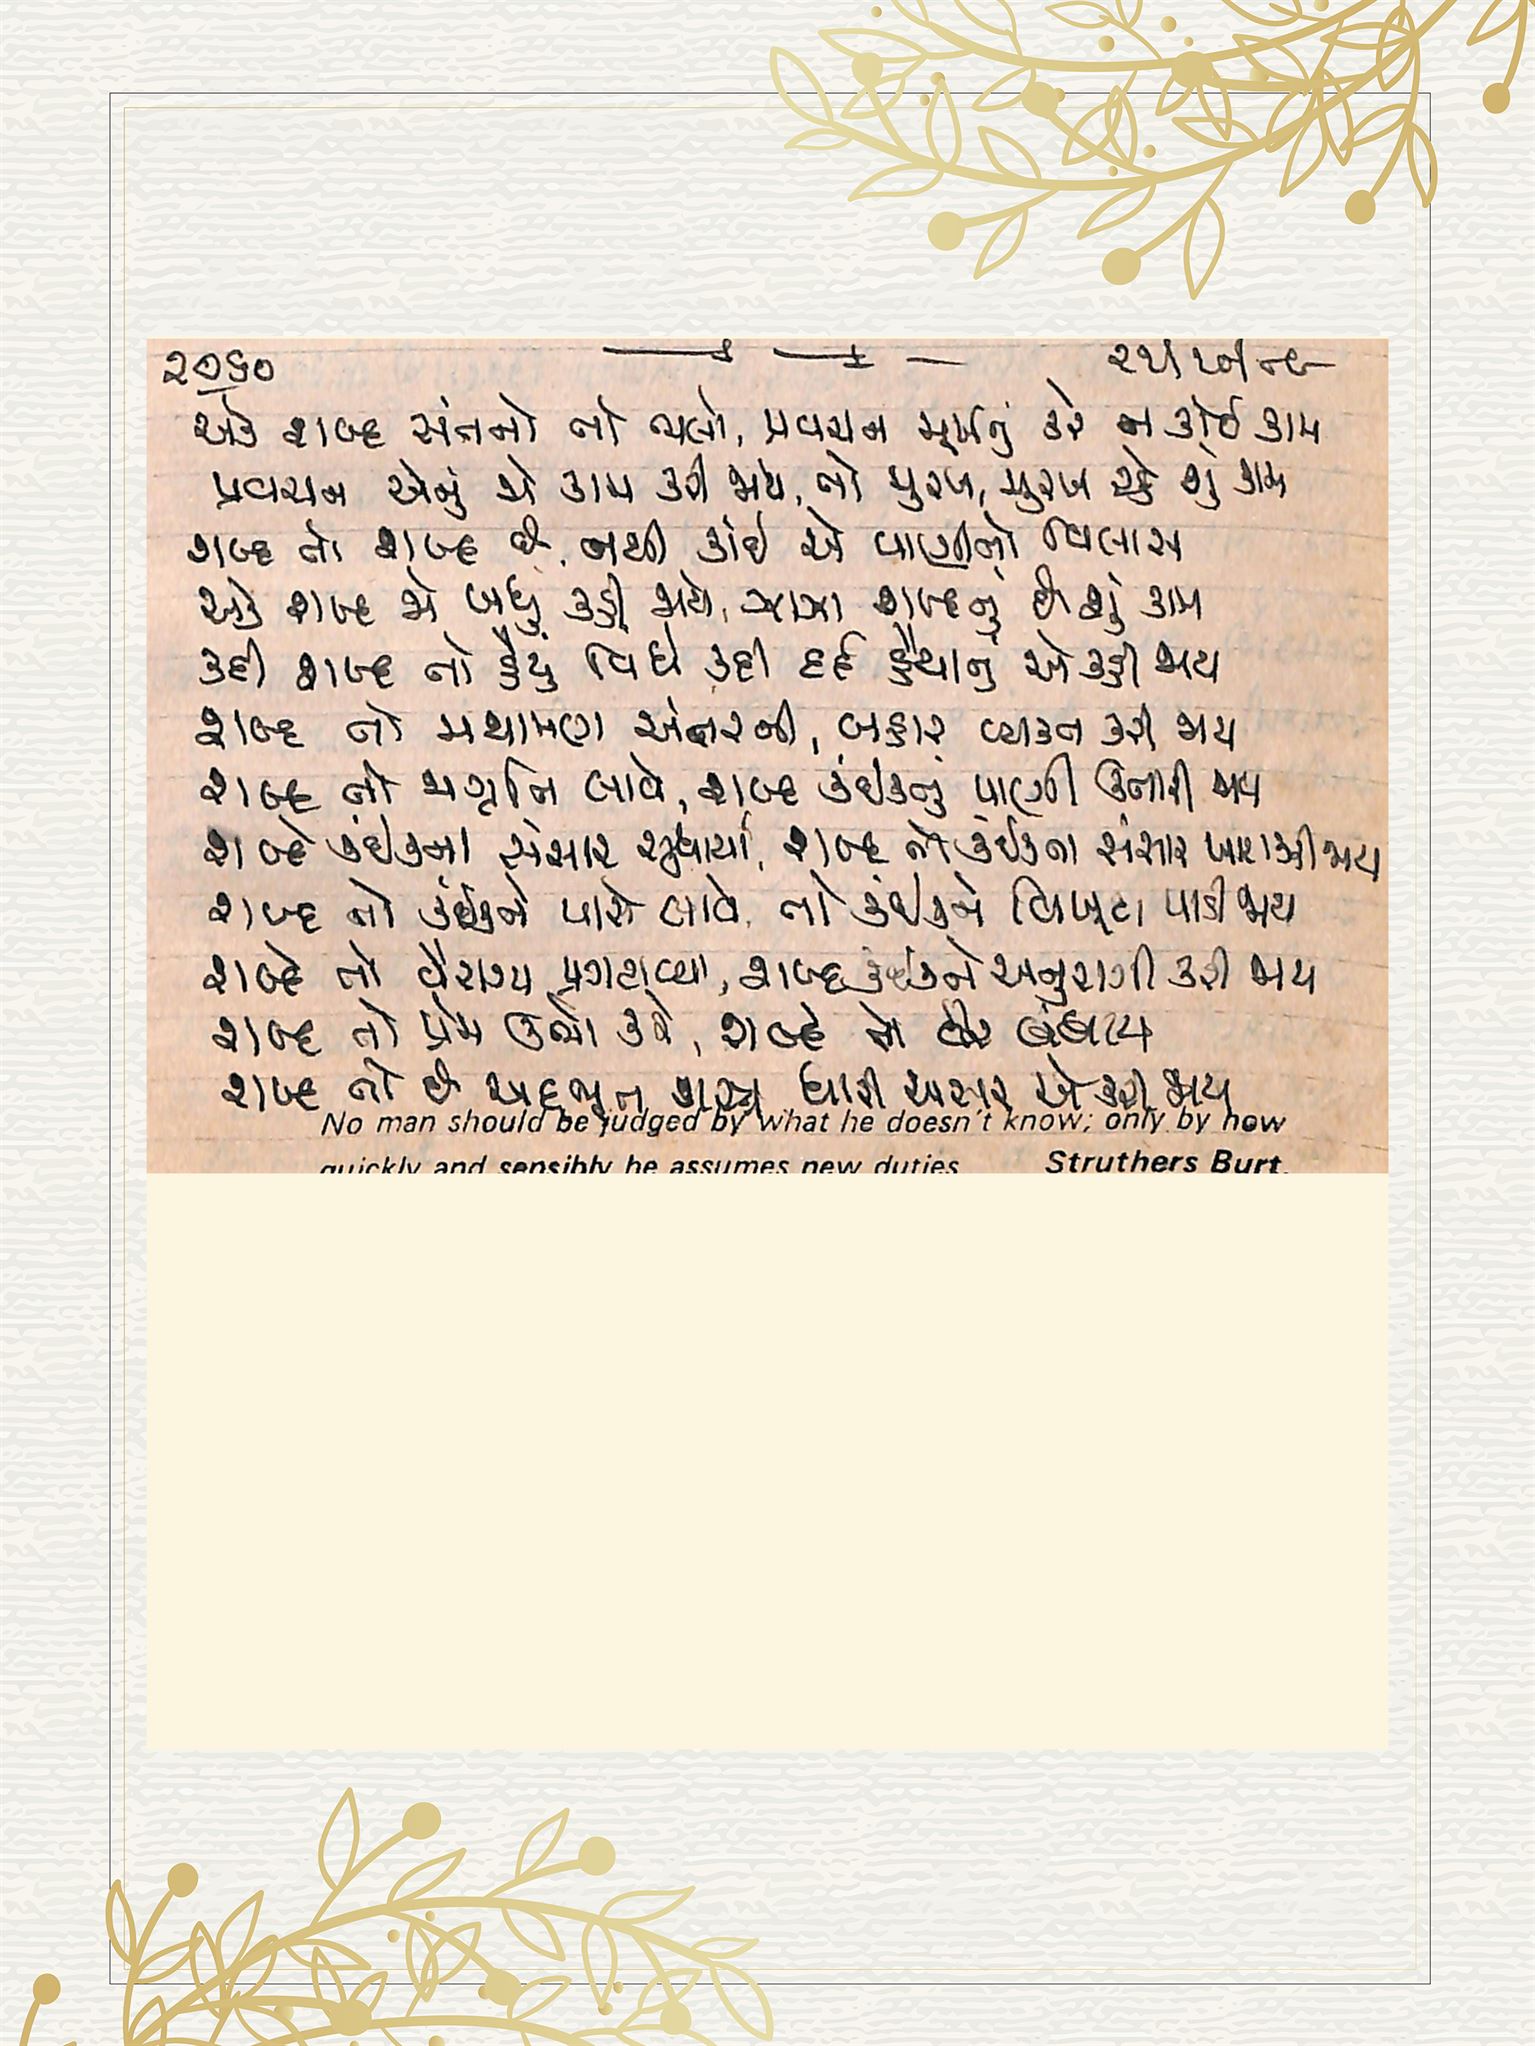 ૨૭૬૦
એક શબ્દ સંતનો તો ભલો, પ્રવચન મૂર્ખનું કરે ન કોઈ કામ
પ્રવચન એનું જો કામ કરી જાય, તો મુરખ, મુરખ રહે શું કામ
શબ્દ તો શબ્દ છે, નથી કાંઈ એ વાણીનો વિલાસ
એક શબ્દ જો બધું કહી જાયે, ઝાઝા શબ્દનું છે શું કામ
કદી શબ્દ તો હૈયું વિંધે કદી દર્દ હૈયાનું એ કહી જાય
શબ્દ તો મથામણ અંતરની, બહાર વ્યક્ત કરી જાય
શબ્દ તો જાગૃતિ લાવે, શબ્દ કંઈકનું પાણી ઉતારી જાય
શબ્દે કંઈકના સંસાર સુધાર્યા, શબ્દ તો કંઈકના સંસાર ખારા કરી જાય
શબ્દ તો કંઈકને પાસે લાવે, તો કંઈકને વિખૂટા પાડી જાય
શબ્દે તો વૈરાગ્ય પ્રગટાવ્યા, શબ્દ કંઈકને અનુરાગી કરી જાય
શબ્દ તો પ્રેમ ઉભો કરે, શબ્દે તો વેર બંધાય
શબ્દ તો છે અદભૂત શસ્ત્ર ધારી અસર એ કરી જાય
No man should be judged by what he doesn't know; only by how
quickly and sensibly he assumes new duties Struthers Burt.